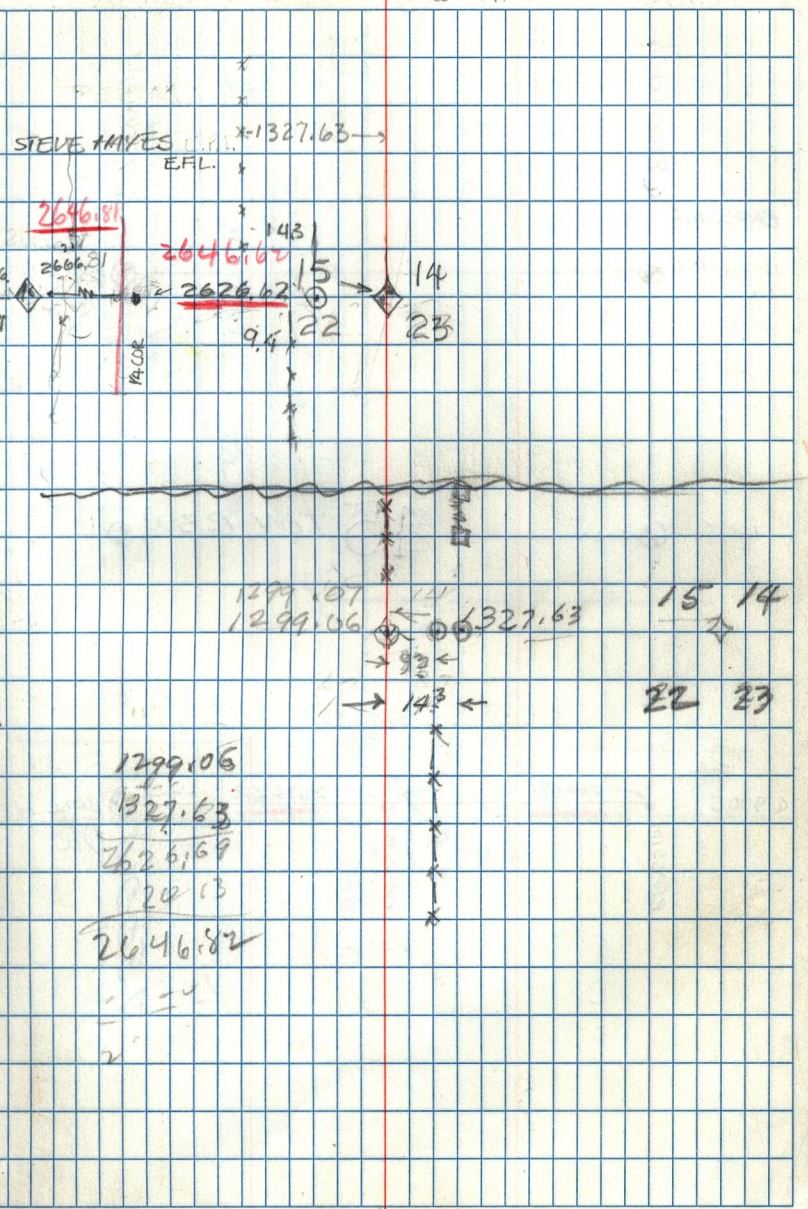 1327.63
STEVE HAYES
E.F.L.
2646.81
143
2646.62
2666.81
15 14
2626.62
22 23
9.4
1/4 COR
1299.07
1299.06 1327.63
15 14
93
14.3
22 23
1299.06
1327.63
2626.69
20 13
2646.82
2